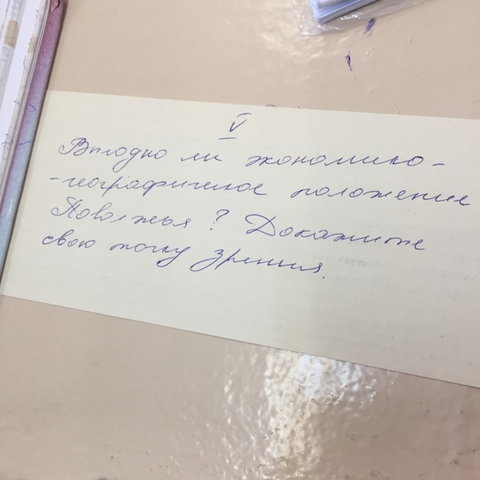 V
Выгодно ли экономико-
-географическое положение
Поволжья? Докажите
свою точку зрения.